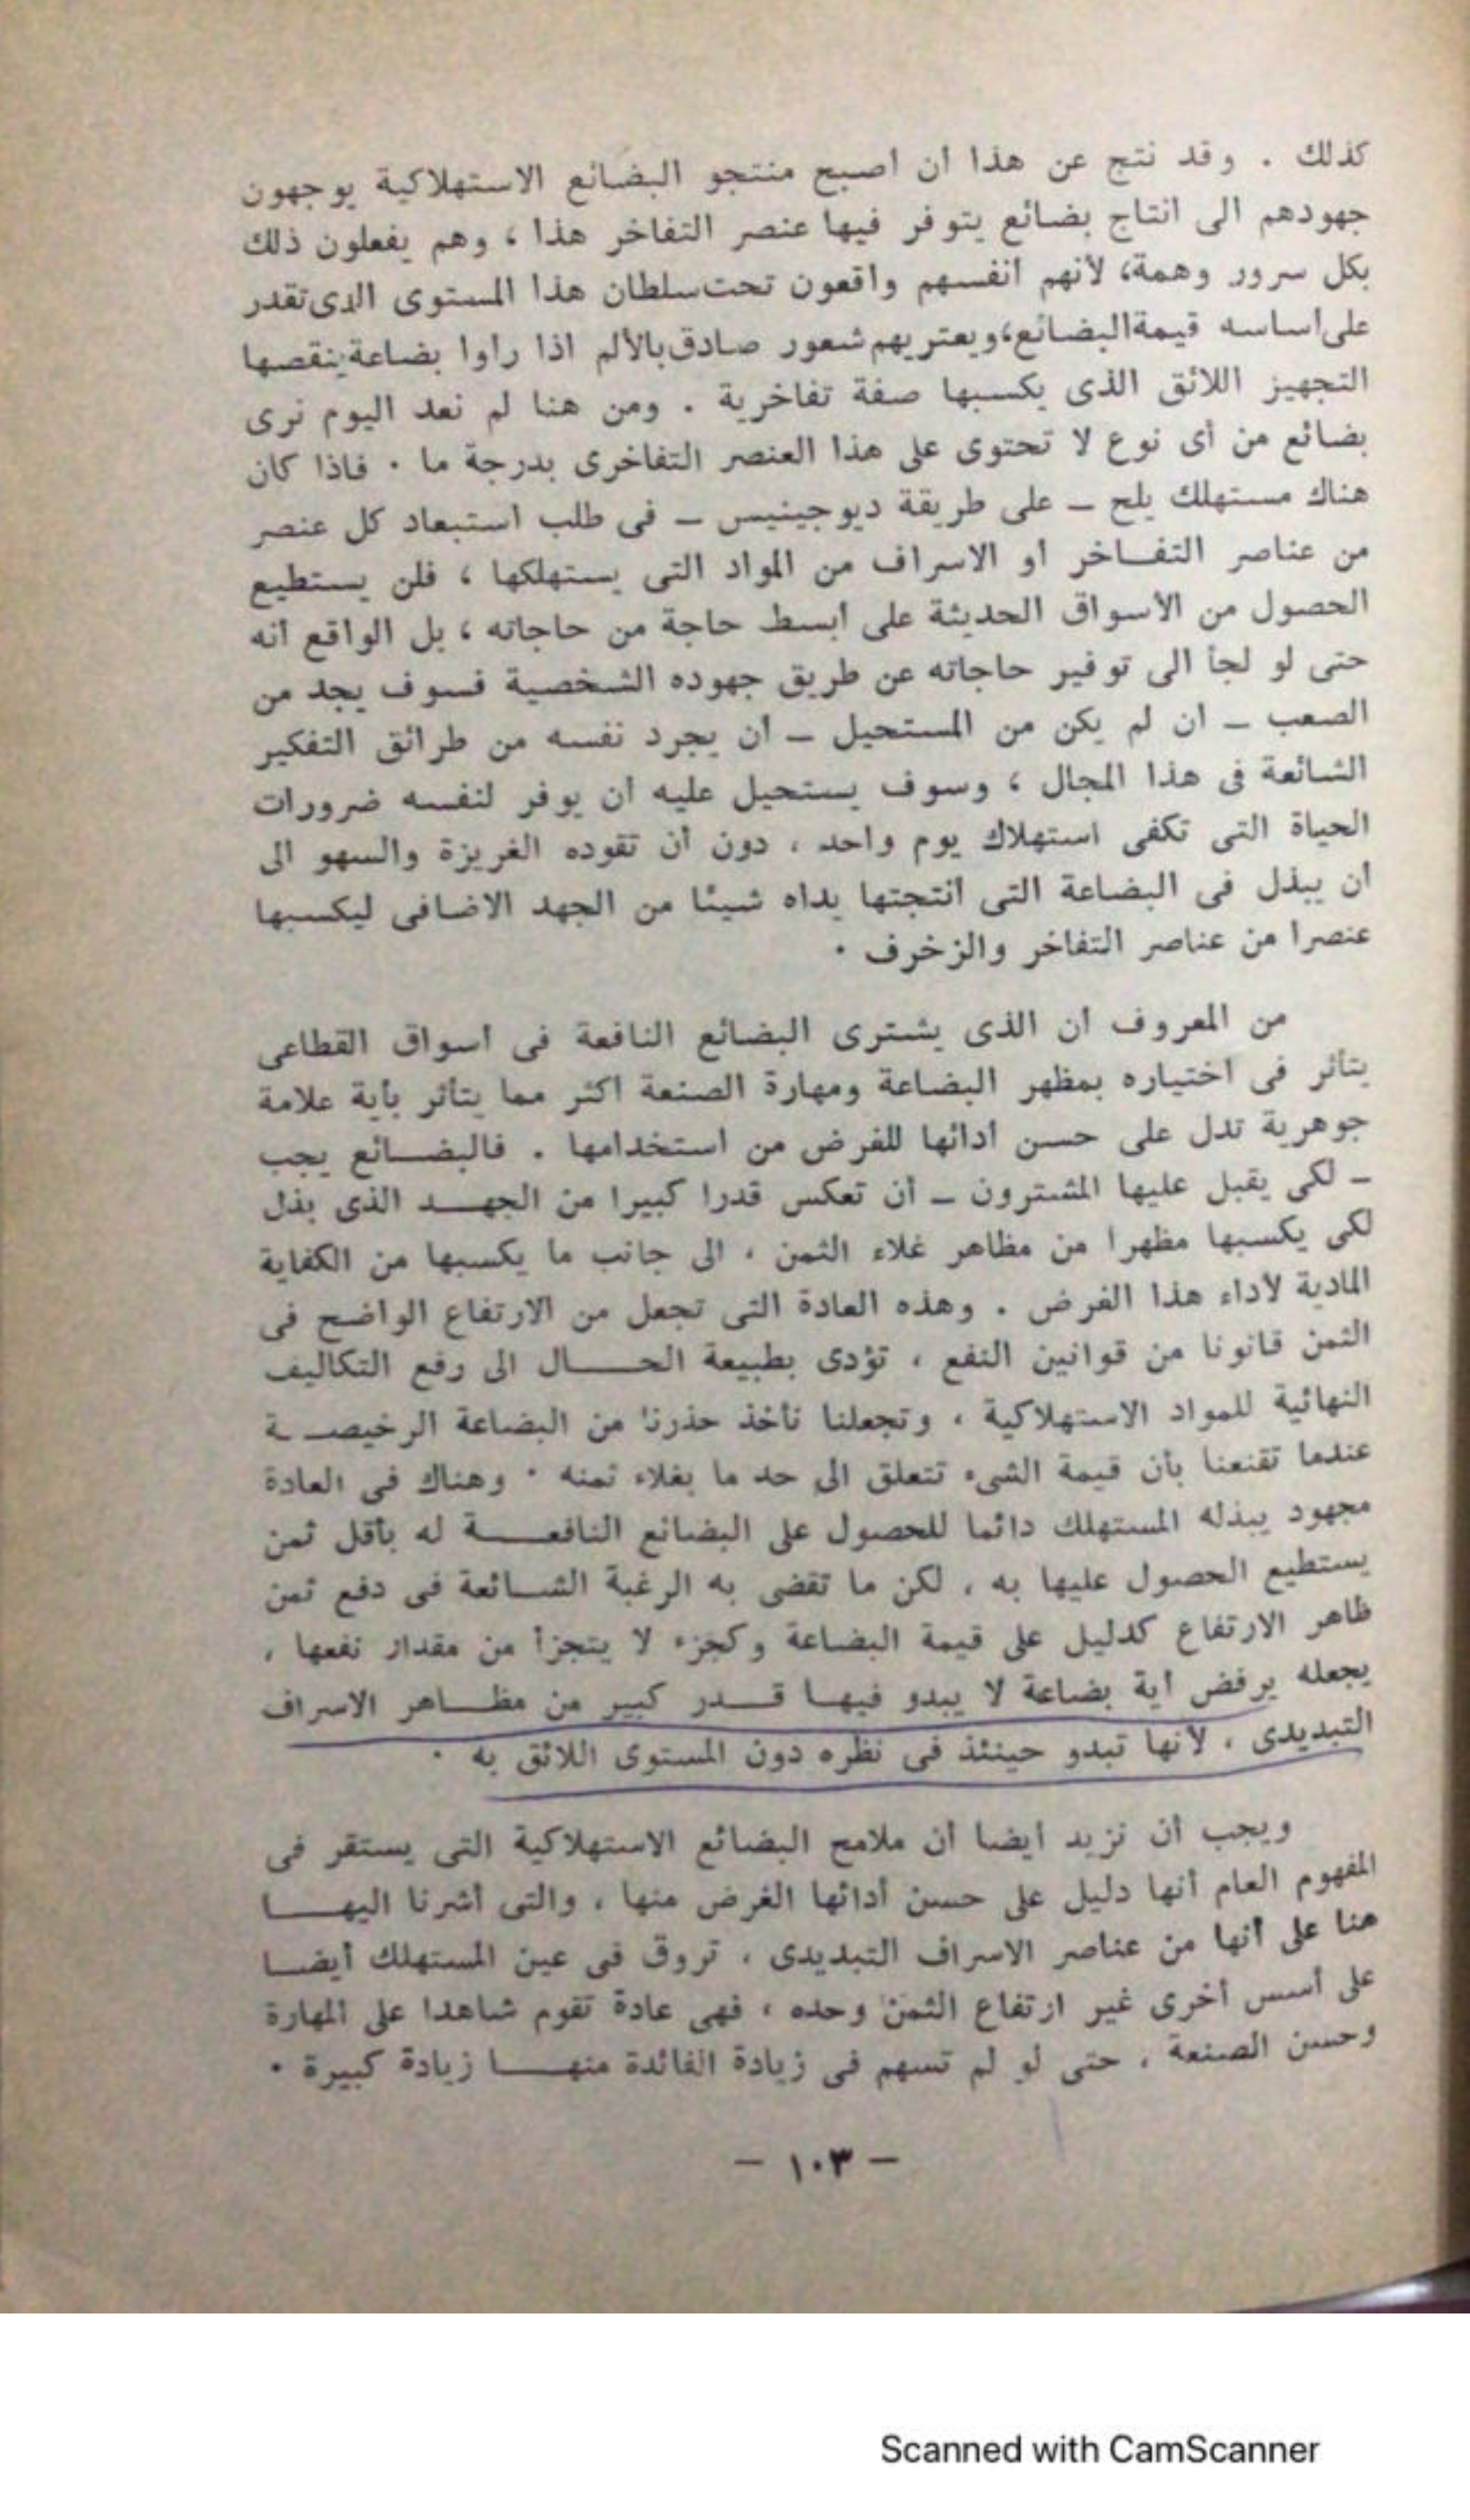 كذلك . وقد نتج عن هذا أن أصبح منتجو البضائع الاستهلاكية يوجهون
جهودهم الى انتاج بضائع يتوفر فيها عنصر التفاخر هذا ، وهم يفعلون ذلك
بكل سرور وهمة، لأنهم أنفسهم واقعون تحت سلطان هذا المستوى الذى تقدر
على أساسه قيمة البضائع، ويعتريهم شعور صادق بالألم اذا رأوا بضاعة ينقصها
التجهيز اللائق الذى يكسبها صفة تفاخرية . ومن هنا لم نعد اليوم نرى
بضائع من أى نوع لا تحتوى على هذا العنصر التفاخرى بدرجة ما . فاذا كان
هناك مستهلك يلح – على طريقة ديوجينيس – فى طلب استبعاد كل عنصر
من عناصر التفـاخر أو الاسراف من المواد التى يستهلكها ، فلن يستطيع
الحصول من الأسواق الحديثة على أبسط حاجة من حاجاته ، بل الواقع أنه
حتى لو لجأ الى توفير حاجاته عن طريق جهوده الشخصية فسوف يجد من
الصعب – ان لم يكن من المستحيل – أن يجرد نفسه من طرائق التفكير
الشائعة فى هذا المجال ، وسوف يستحيل عليه أن يوفر لنفسه ضرورات
الحياة التى تكفى استهلاك يوم واحد ، دون أن تقوده الغريزة والسهو الى
أن يبذل فى البضاعة التى أنتجتها يداه شيئا من الجهد الاضافى ليكسبها
عنصرا من عناصر التفاخر والزخرف .
من المعروف أن الذى يشترى البضائع النافعة فى أسواق القطاعى
يتأثر فى اختياره بمظهر البضاعة ومهارة الصنعة أكثر مما يتأثر بأية علامة
جوهرية تدل على حسن أدائها للغرض من استخدامها . فالبضـائع يجب
– لكى يقبل عليها المشترون – أن تعكس قدرا كبيرا من الجهـد الذى بذل
لكى يكسبها مظهرا من مظاهر غلاء الثمن ، الى جانب ما يكسبها من الكفاية
المادية لأداء هذا الغرض . وهذه العادة التى تجعل من الارتفاع الواضح فى
الثمن قانونا من قوانين النفع ، تؤدى بطبيعة الحـــال الى رفع التكاليف
النهائية للمواد الاستهلاكية ، وتجعلنا نأخذ حذرنا من البضاعة الرخيصـة
عندما تقنعنا بأن قيمة الشىء تتعلق الى حد ما بغلاء ثمنه . وهناك فى العادة
مجهود يبذله المستهلك دائما للحصول على البضائع النافعـــة له بأقل ثمن
يستطيع الحصول عليها به ، لكن ما تقضى به الرغبة الشـائعة فى دفع ثمن
ظاهر الارتفاع كدليل على قيمة البضاعة وكجزء لا يتجزأ من مقدار نفعها ،
يجعله يرفض أية بضاعة لا يبدو فيهـا قـدر كبير من مظـاهر الاسراف
التبديدى ، لأنها تبدو حينئذ فى نظره دون المستوى اللائق به .
ويجب أن نزيد أيضا أن ملامح البضائع الاستهلاكية التى يستقر فى
المفهوم العام أنها دليل على حسن أدائها الغرض منها ، والتى أشرنا اليهـــا
هنا على أنها من عناصر الاسراف التبديدى ، تروق فى عين المستهلك أيضـا
على أسس أخرى غير ارتفاع الثمن وحده ، فهى عادة تقوم شاهدا على المهارة
وحسن الصنعة ، حتى لو لم تسهم فى زيادة الفائدة منهـــا زيادة كبيرة .
– ١٠٣ –
Scanned with CamScanner